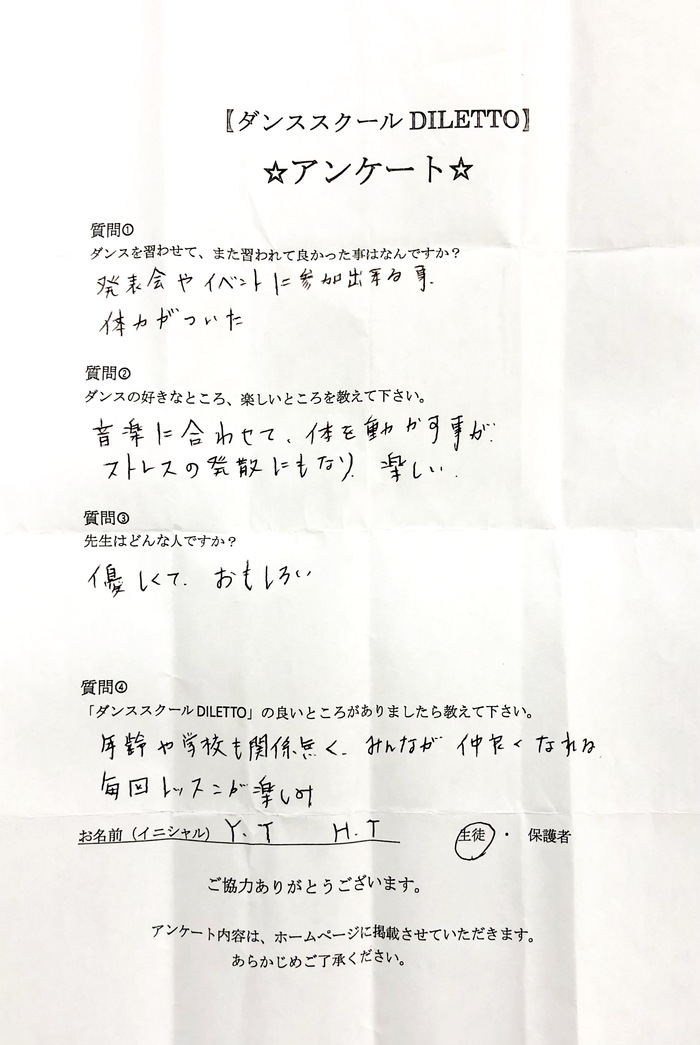 〖ダンススクール DILETTO〗
☆アンケート☆
質問①
ダンスを習わせて、また習われて良かった事はなんですか？
発表会やイベントに参加出来る事.
体力がついた
質問②
ダンスの好きなところ、楽しいところを教えて下さい。
音楽に合わせて、体を動かす事が.
ストレスの発散にもなり、楽しい.
質問③
先生はどんな人ですか？
優しくて. おもしろい
質問④
「ダンススクール DILETTO」の良いところがありましたら教えて下さい。
年齢や学校も関係無く、みんなが 仲良くなれる.
毎回レッスンが楽しみ
お名前（イニシャル） Y.T H.T 生徒 ・ 保護者
ご協力ありがとうございます。
アンケート内容は、ホームページに掲載させていただきます。
あらかじめご了承ください。